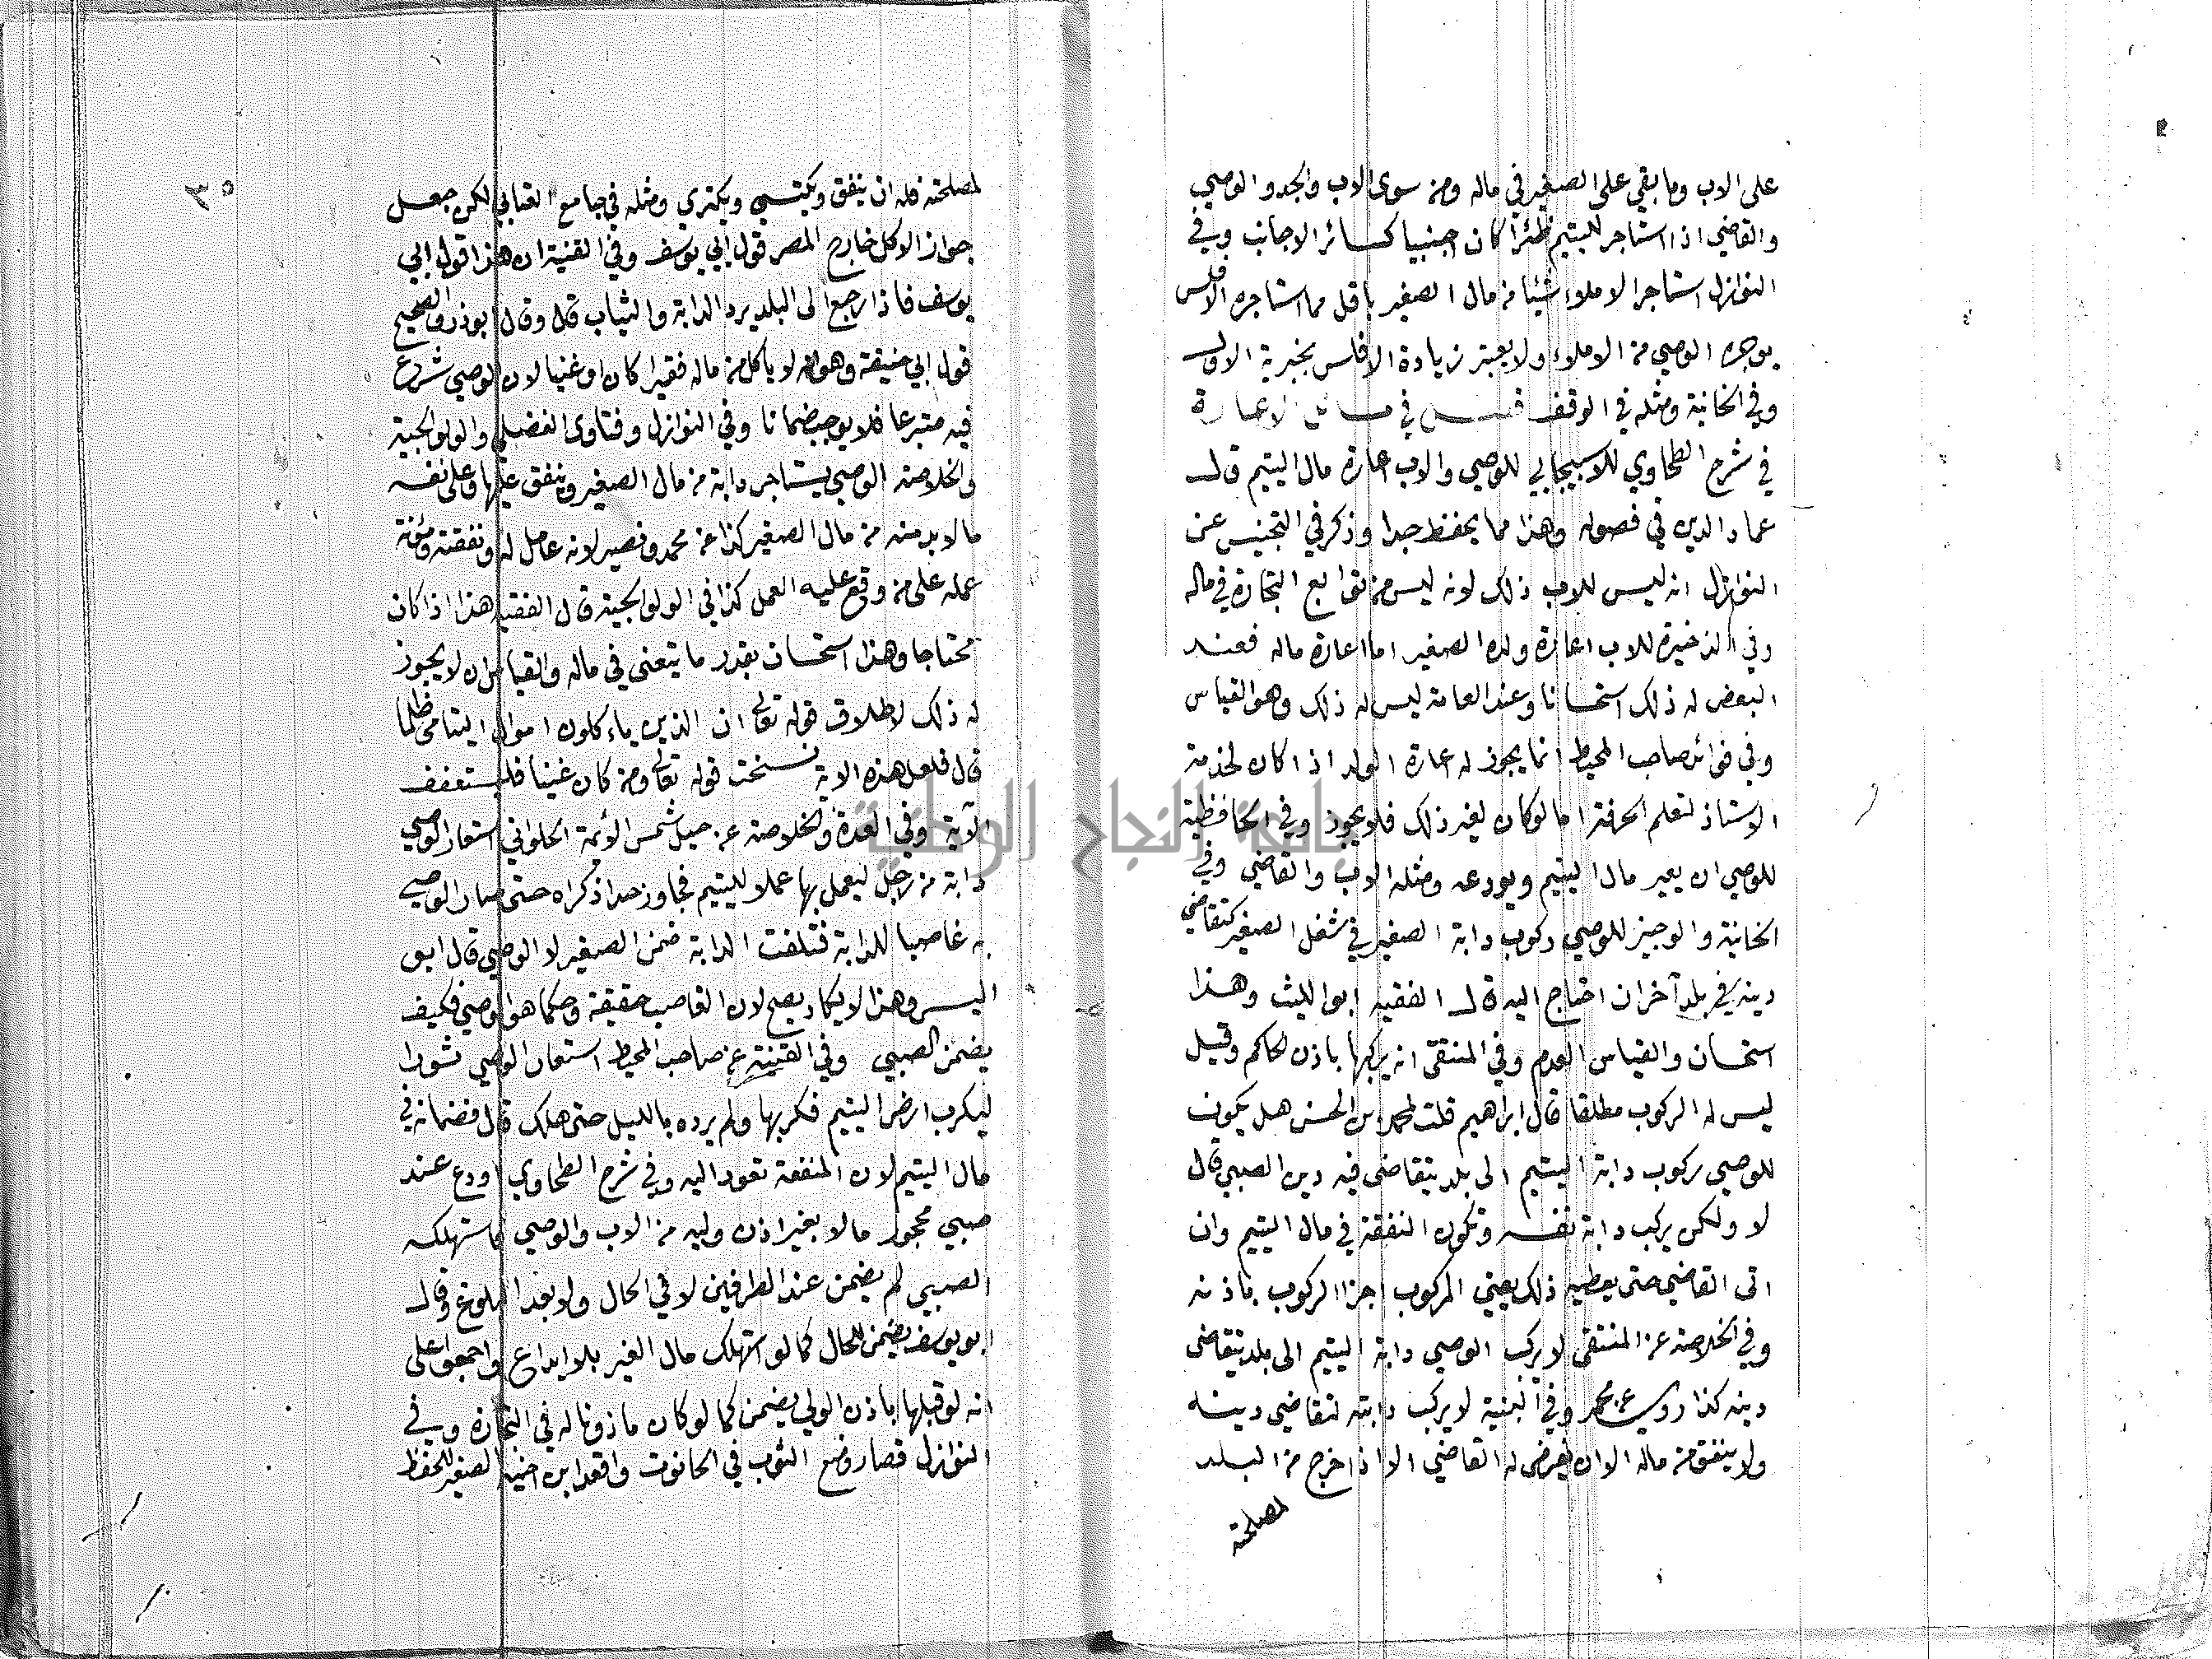 على الاب وما بقي على الصغير في ماله ومن سوى الاب والجد والوصي
والقاضي اذا استاجر لليتيم ظئرا كان اجنبيا كسائر الاجانب وفي
النوازل استاجر الاملاء شيئا من مال الصغير باقل مما استاجره الافلس
يوجره الوصي من الاملاء ولا يعتبر زيادة الافلس بخيرية الاول
وفي الخانية ومثله في الوقف فصل في مسائل الاعارة
في شرح الطحاوي للاسبيجابي للوصي والاب اعارة مال اليتيم قال
عماد الدين في فصوله وهذا مما يحفظ جدا وذكر في التجنيس عن
النوازل انه ليس للاب ذلك لانه ليس من توابع التجارة في ماله
وفي الذخيرة للاب اعارة ولده الصغير اما اعارة ماله فعند
البعض له ذلك استحسانا وعند العامة ليس له ذلك وهو القياس
وفي فوائد صاحب المحيط انما يجوز له اعارة الولد اذا كان لخدمة
الاستاذ لتعلم الحرفة اما لو كان لغير ذلك فلا يجوز وفي الحافظية
للوصي ان يعير مال اليتيم ويودعه ومثله الاب والقاضي وفي
الخانية والوجيز للوصي ركوب دابة الصغير في شغل الصغير كتقاضي
دينه في بلد آخر ان احتاج اليه قال الفقيه ابو الليث وهذا
استحسان والقياس العدم وفي المنتقى انه يركبها باذن الحاكم وقيل
ليس له الركوب مطلقا قال ابراهيم قلت لمحمد بن الحسن هل يكون
للوصي ركوب دابة اليتيم الى بلد يتقاضى فيه دين الصبي قال
لا ولكن يركب دابة نفسه وتكون النفقة في مال اليتيم وان
اتى القاضي حتى يعطيه ذلك يعني المركوب اجزا الركوب باذنه
وفي الخلاصة عن المنتقى لا يركب الوصي دابة اليتيم الى بلد يتقاضى
دينه كذا روي عن محمد وفي البنية لا يركب دابته لتقاضي دينه
ولا ينفق من ماله الا ان يفرض له القاضي الا اذا خرج من البلد
لمصلحته
٣٥
لمصلحته فله ان ينفق ويكتسي ويكتري ومثله في جامع العتابي لكن جعل
جواز الاكل خارج المصر قول ابي يوسف وفي القنية ان هذا قول ابي
يوسف فاذا رجع الى البلد يرد الدابة والثياب قال وقال ابو ذر والصحيح
قول ابي حنيفة وهو انه لا ياكل من ماله فقيرا كان او غنيا لان الوصي شرع
فيه متبرعا فلا يوجب ضمانا وفي النوازل وفتاوى الفضلي والولوالجية
والخلاصة الوصي يستاجر دابة من مال الصغير وينفق عليها وعلى نفسه
مالا بد منه من مال الصغير كذا عن محمد ونصير لانه عامل له ونفقته ومؤنة
عمله على من وقع عليه العمل كذا في الولوالجية قال الفقيه هذا اذا كان
محتاجا وهذا استحسان بقدر ما يتعنى في ماله والقياس ان لا يجوز
له ذلك لاطلاق قوله تعالى ان الذين ياءكلون اموال اليتامى ظلما
قال فلعل هذه الاية نسخت قوله تعالى ومن كان غنيا فليستعفف
الآية وفي العدة والخلاصة عن شمس الأيمة الحلواني استعار الوصي
دابة من رجل ليعمل بها عملا لليتيم فجاوز حدا ذكراه حتى صار الوصي
به غاصبا للدابة فتلفت الدابة ضمن الصغير لا الوصي قال ابو
اليسر وهذا لا يكاد يصح لان الغاصب حقيقة وحكما هو الوصي فكيف
يضمن الصبي وفي القنية عن صاحب المحيط استعار الوصي ثورا
ليكرب ارض اليتيم فكربها ولم يرده بالليل حتى هلك قال فضمانه في
مال اليتيم لان المنفعة تعود اليه وفي شرح الطحاوي اودع عند
صبي محجور مالا بغير اذن وليه من الاب والوصي فاستهلكه
الصبي لم يضمن عند الطرفين لا في الحال ولا بعد البلوغ وقال
ابو يوسف يضمن للحال كما لو استهلك مال الغير بلا ايداع واجمعوا على
انه لو قبلها باذن الولي يضمن كما لو كان ماذونا له في التجارة وفي
النوازل قصار وضع الثوب في الحانوت واقعد ابن اخيه الصغير للحفظ
جامعة النجاح الوطنية